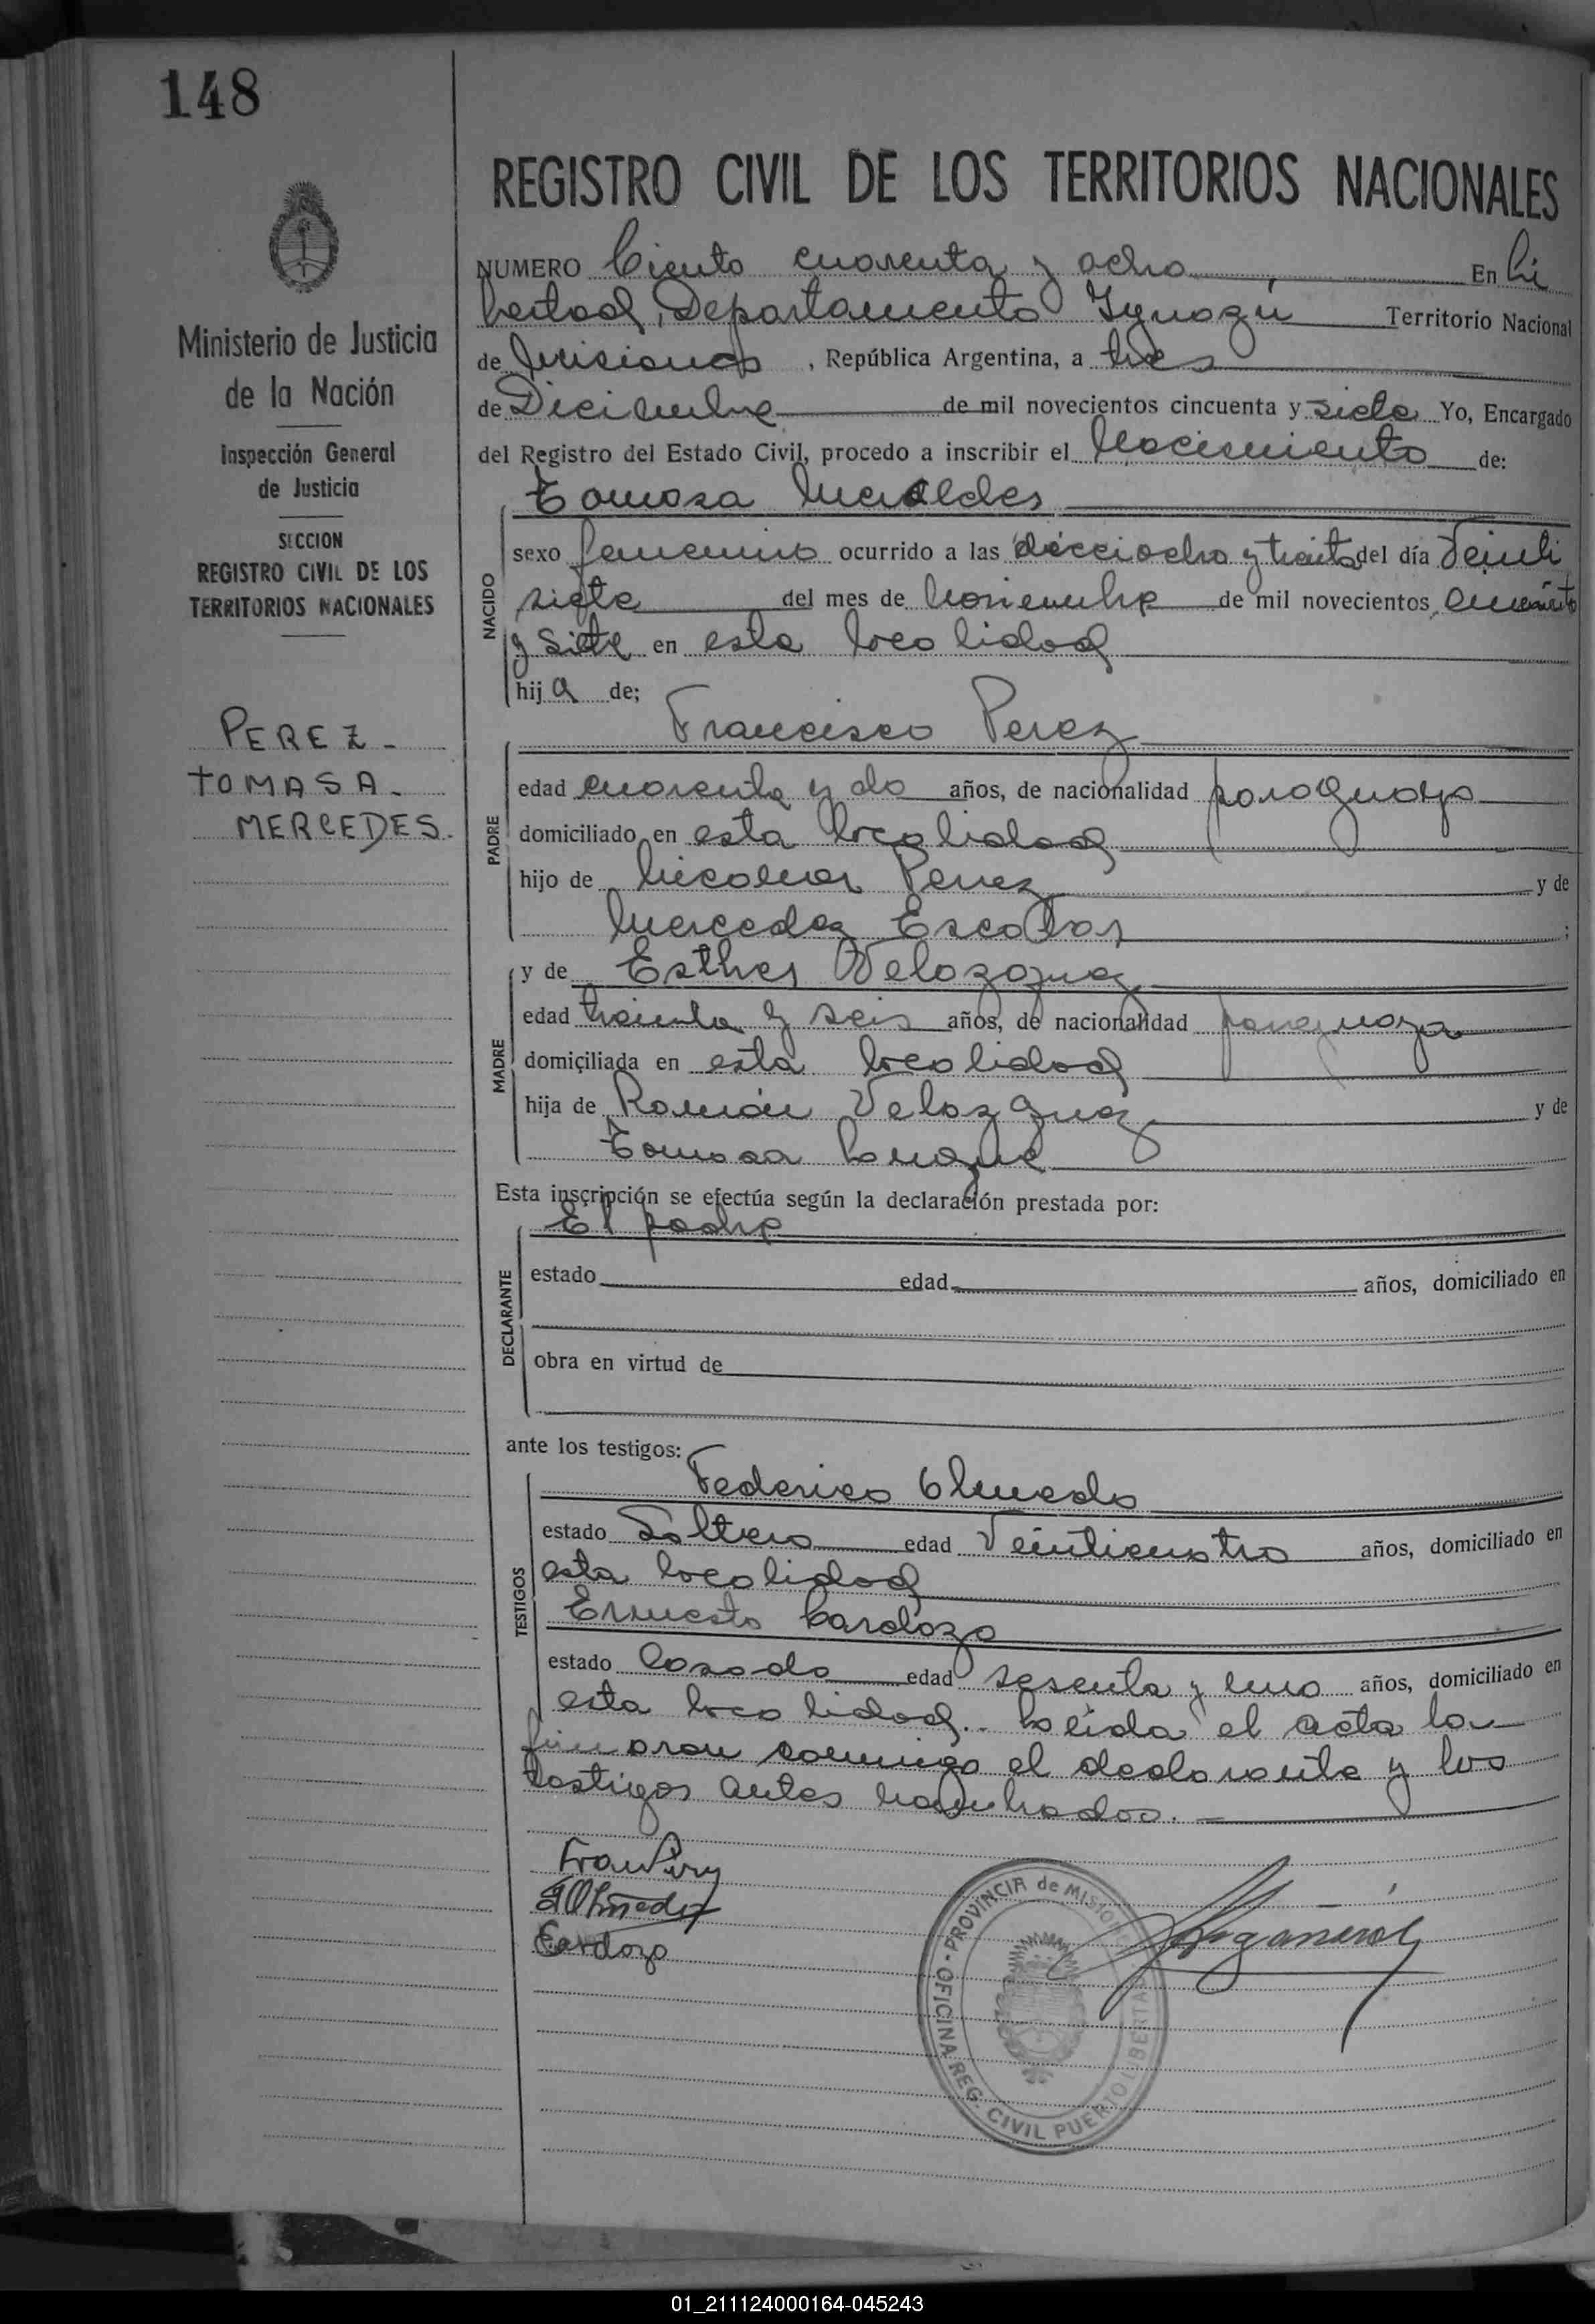 148
Ministerio de Justicia
de la Nación
Inspección General
de Justicia
SECCION
REGISTRO CIVIL DE LOS
TERRITORIOS NACIONALES
PEREZ -
TOMASA -
MERCEDES.
REGISTRO CIVIL DE LOS TERRITORIOS NACIONALES
NUMERO Ciento cuarenta y ocho En Li
bertad, Departamento Iguazú Territorio Nacional
de Misiones, República Argentina, a tres
de Diciembre de mil novecientos cincuenta y siete Yo, Encargado
del Registro del Estado Civil, procedo a inscribir el Nacimiento de:
Tomasa
NACIDO
sexo femenino ocurrido a las dieciocho y treinta del día Veinti
siete del mes de Noviembre de mil novecientos
y siete en esta localidad
hija de;
Francisco Perez
PADRE
edad cuarenta y do años, de nacionalidad paraguayo
domiciliado en esta localidad
hijo de Nicolas Perez y de
Mercedes Escobar;
MADRE
y de Esther Velazquez
edad treinta y seis años, de nacionalidad paraguaya
domiciliada en esta localidad
hija de Román Velazquez y de
Tomasa
Esta inscripción se efectúa según la declaración prestada por:
El padre
DECLARANTE
estado edad años, domiciliado en
obra en virtud de
ante los testigos:
Federico Olmedo
TESTIGOS
estado Soltero edad Veinticuatro años, domiciliado en
esta localidad
Ernesto Cardozo
estado Casado edad sesenta y uno años, domiciliado en
esta localidad.- Leída el acta la
firmaron conmigo el declarante y los
testigos antes nombrados.-
Cardozo
OFICINA REG. CIVIL PUERTO LIBERTAD - PROVINCIA de MISIONES
01_211124000164-045243